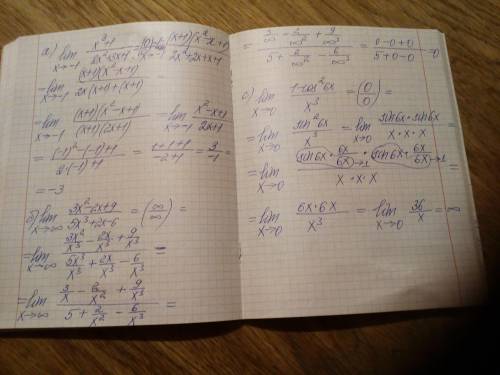 а) lim x→-1 (x³+1)/(2x²+3x+1) = (0/0) = lim x→-1 (x+1)(x²-x+1)/(2x²+2x+x+1) =
= lim x→-1 (x+1)(x²-x+1)/(2x(x+1)+(x+1)) =
= lim x→-1 (x+1)(x²-x+1)/((x+1)(2x+1)) = lim x→-1 (x²-x+1)/(2x+1) =
= ((-1)²-(-1)+1)/(2·(-1)+1) = (1+1+1)/(-2+1) = 3/(-1) =
= -3
б) lim x→∞ (3x²-6x+9)/(5x³+2x-6) = (∞/∞) =
= lim x→∞ (3x²/x³ - 6x/x³ + 9/x³)/(5x³/x³ + 2x/x³ - 6/x³) =
= lim x→∞ (3/x - 6/x² + 9/x³)/(5 + 2/x² - 6/x³) =
= (3/∞ - 6/∞² + 9/∞³)/(5 + 2/∞² - 6/∞³) = (0-0+0)/(5+0-0) = 0
с) lim x→0 (1-cos²6x)/x³ = (0/0) =
= lim x→0 sin²6x/x³ = lim x→0 (sin6x·sin6x)/(x·x·x) =
= lim x→0 (sin6x·6x/6x→1 · sin6x·6x/6x→1)/(x·x·x) =
= lim x→0 (6x·6x)/x³ = lim x→0 36/x = ∞